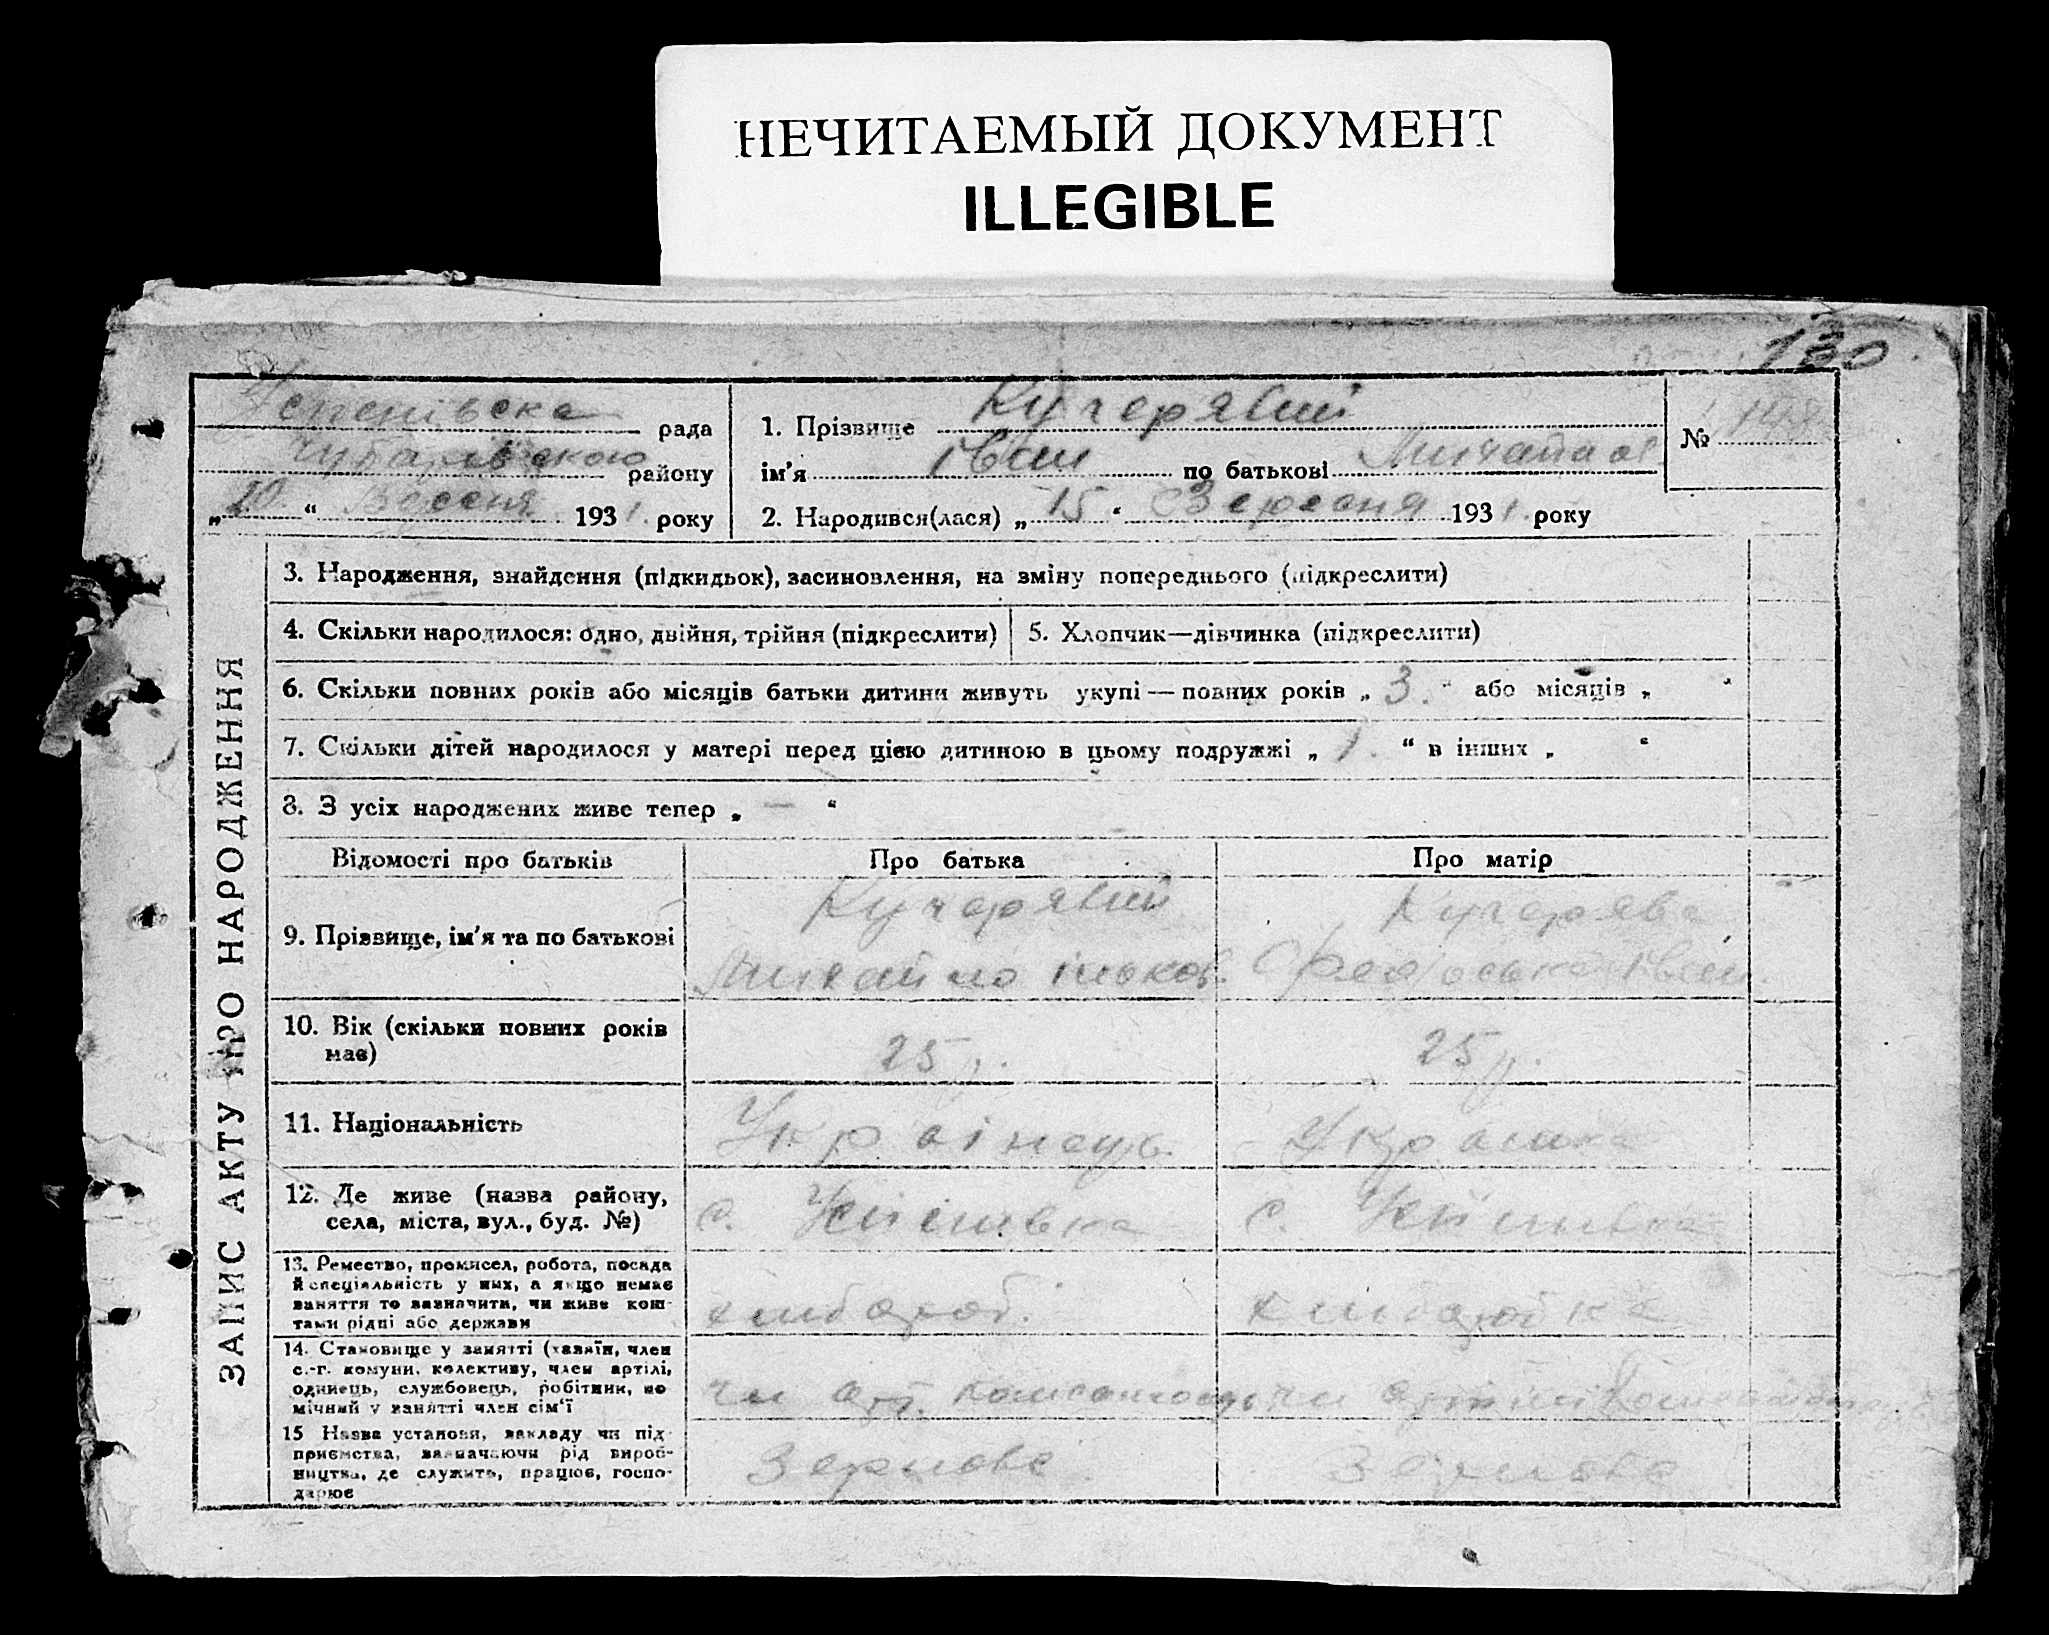 НЕЧИТАЕМЫЙ ДОКУМЕНТ
ILLEGIBLE
130
Успенівска рада
Чубарівською району
„20“ Вересня 1931. року
1. Прізвище Кучерявий
ім'я Іван по батькові
№
2. Народився(лася) „15“ Вересня 1931. року
ЗАПИС АКТУ ПРО НАРОДЖЕННЯ
3. Народження, знайдення (підкидьок), засиновлення, на зміну попереднього (підкреслити)
4. Скільки народилося: одно, двійня, трійня (підкреслити)
5. Хлопчик—дівчинка (підкреслити)
6. Скільки повних років або місяців батьки дитини живуть укупі — повних років „3.“ або місяців „ “
7. Скільки дітей народилося у матері перед цією дитиною в цьому подружжі „1.“ в інших „ “
8. З усіх народжених живе тепер „—“
Відомості про батьків Про батька Про матір
9. Прізвище, ім'я та по батькові
Кучерявий
Михайло Ільков.
Кучерява
Іван.
10. Вік (скільки повних років має)
25 р. 25 р.
11. Національність
Українець. Українка
12. Де живе (назва району,
села, міста, вул., буд. №)
с. Успінівка с. Успінівка
13. Ремество, промисел, робота, посада
й спеціяльність у них, а якщо немає
заняття то зазначити, чи живе кош-
тами рідні або держави
хлібороб. хліборобка
14. Становище у занятті (хазяїн, член
с.-г. комуни, колективу, член артілі,
одинець, службовець, робітник, по
мічний у занятті член сім'ї
чл арт. чл артілі
15 Назва установи, закладу чи під-
приємства, зазначаючи рід вироб-
ництва, де служить, працює, госпо-
дарює
Зернове Зернове